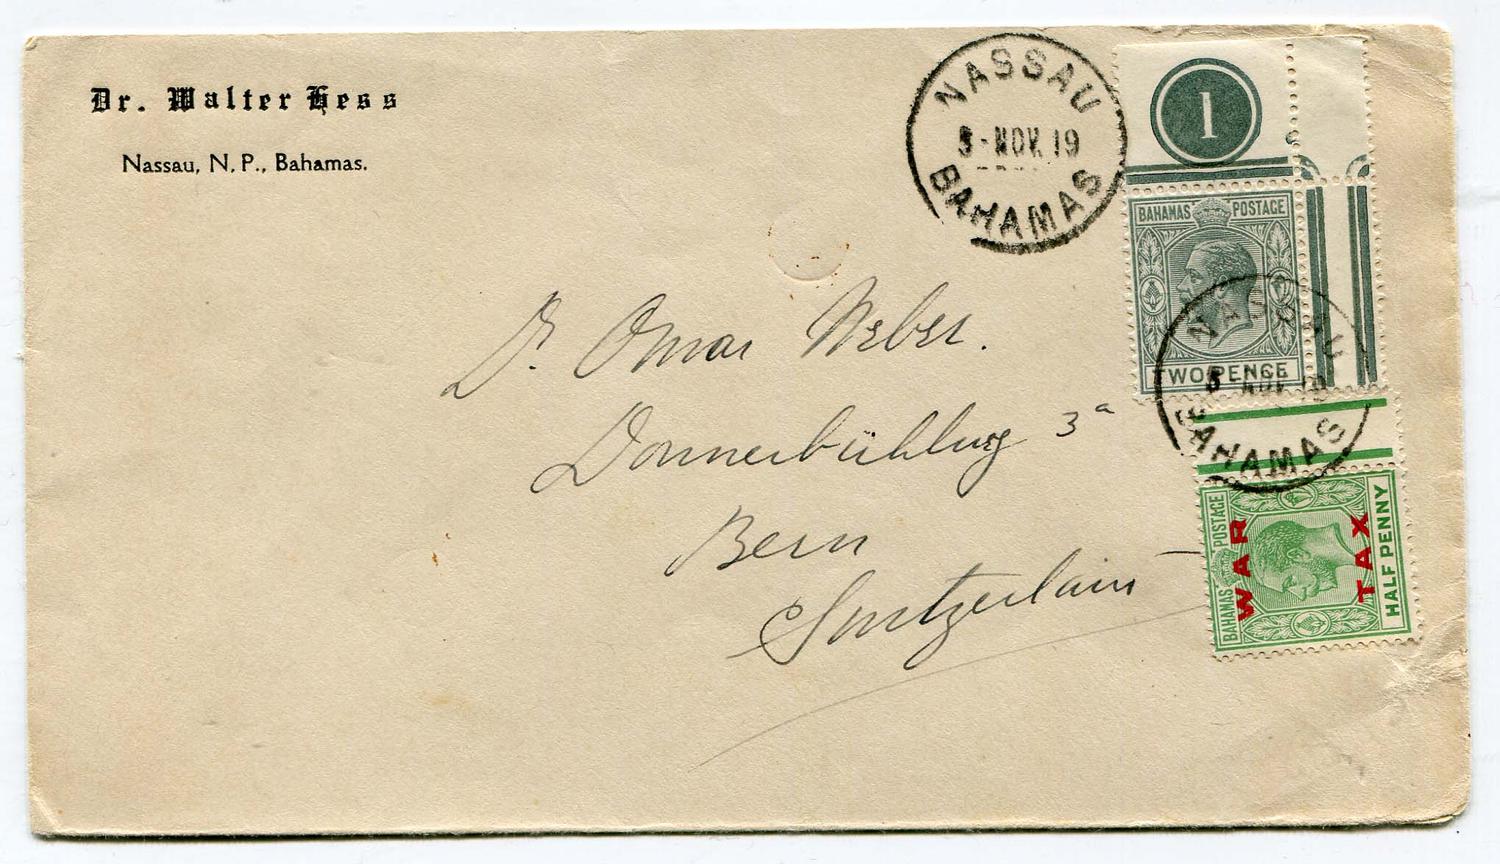 Dr. Walter Hess
Nassau, N. P., Bahamas.
NASSAU
5-NOV. 19
BAHAMAS
1
BAHAMAS POSTAGE
TWO PENCE
NASSAU
5 NOV 19
BAHAMAS
BAHAMAS POSTAGE
WAR TAX
HALF PENNY
Dr Omar Weber.
Donnerbühlweg 3a
Bern
Switzerland